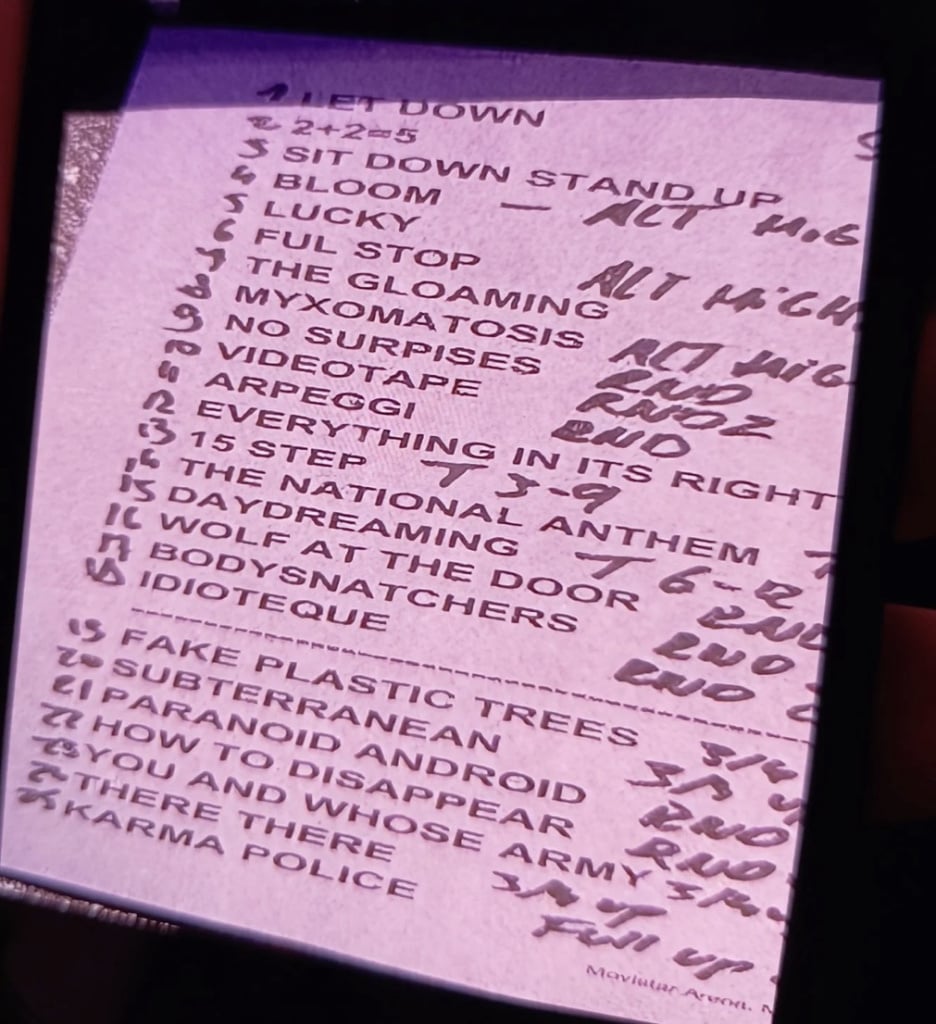 1 LET DOWN
2 2+2=5
3 SIT DOWN STAND UP
4 BLOOM — ALT HIG
5 LUCKY
6 FUL STOP ALT HIGH
7 THE GLOAMING
8 MYXOMATOSIS ALT HIG
9 NO SURPISES RND
10 VIDEOTAPE RND 2
11 ARPEGGI RND
12 EVERYTHING IN ITS RIGHT
13 15 STEP T 3-9
14 THE NATIONAL ANTHEM T
15 DAYDREAMING T 6-12
16 WOLF AT THE DOOR RND
17 BODYSNATCHERS RND
18 IDIOTEQUE RND
19 FAKE PLASTIC TREES 3/4
20 SUBTERRANEAN 3/4 U
21 PARANOID ANDROID RND
22 HOW TO DISAPPEAR RND
23 YOU AND WHOSE ARMY 3/4
24 THERE THERE 3/4 UP
25 KARMA POLICE FULL UP
Movistar Arena,